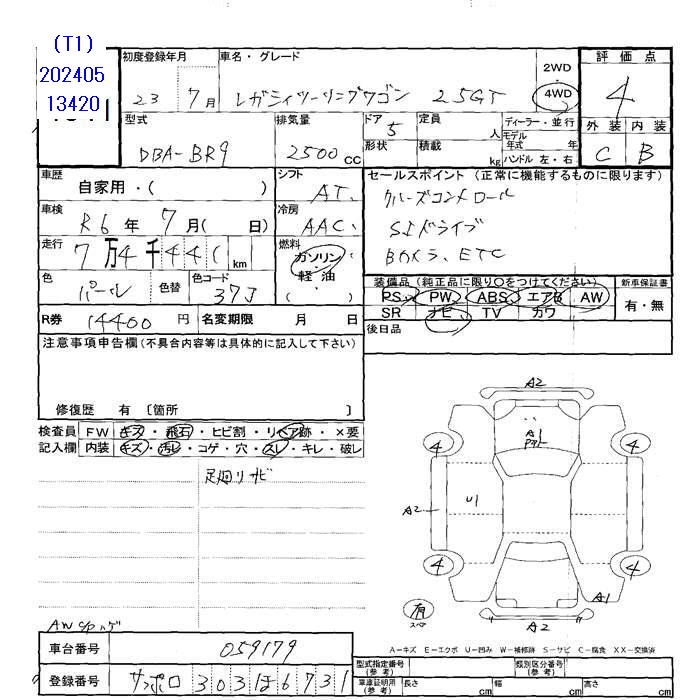 (T1)
202405
13420
初度登録年月
車名・グレード
23 7月
レガシィツーリングワゴン 2.5GT
2WD
4WD
評価点
4
外装 内装
C B
型式
DBA-BR9
排気量
2500 CC
ドア 5
形状
定員 人
積載 kg
ディーラー・並行
モデル
年式 年
ハンドル 左・右
車歴
自家用・( )
シフト
AT
セールスポイント (正常に機能するものに限ります)
クルーズコントロール
SIドライブ
Bカメラ、ETC
車検
R6年 7月( 日)
冷房
AAC
走行
7万4千441km
燃料
ガソリン
軽油
( )
色
パール
色替
色コード
37J
装備品(純正品に限り○をつけてください)
PS PW ABS エアB AW
SR ナビ TV カワ
新車保証書
有・無
後日品
R券 14400 円
名変期限 月 日
注意事項申告欄(不具合内容等は具体的に記入して下さい)
修復歴 有 〔箇所 〕
検査員 FW キズ・飛石・ヒビ割・リペア跡・×要
記入欄 内装 キズ・汚レ・コゲ・穴・スレ・キレ・破レ
足廻リサビ
A2
A1
4
4
A2
U1
4
4
A1
有
スペア
A2
AWSPハゲ
A-キズ E-エクボ U-凹み W-補修跡 S-サビ C-腐食 XX-交換済
車台番号
059179
登録番号
サッポロ 303 ほ 6731
型式指定番号
(参考)
類別区分番号
(参考)
車庫証明用
(参考)
長さ cm
幅 cm
高さ cm